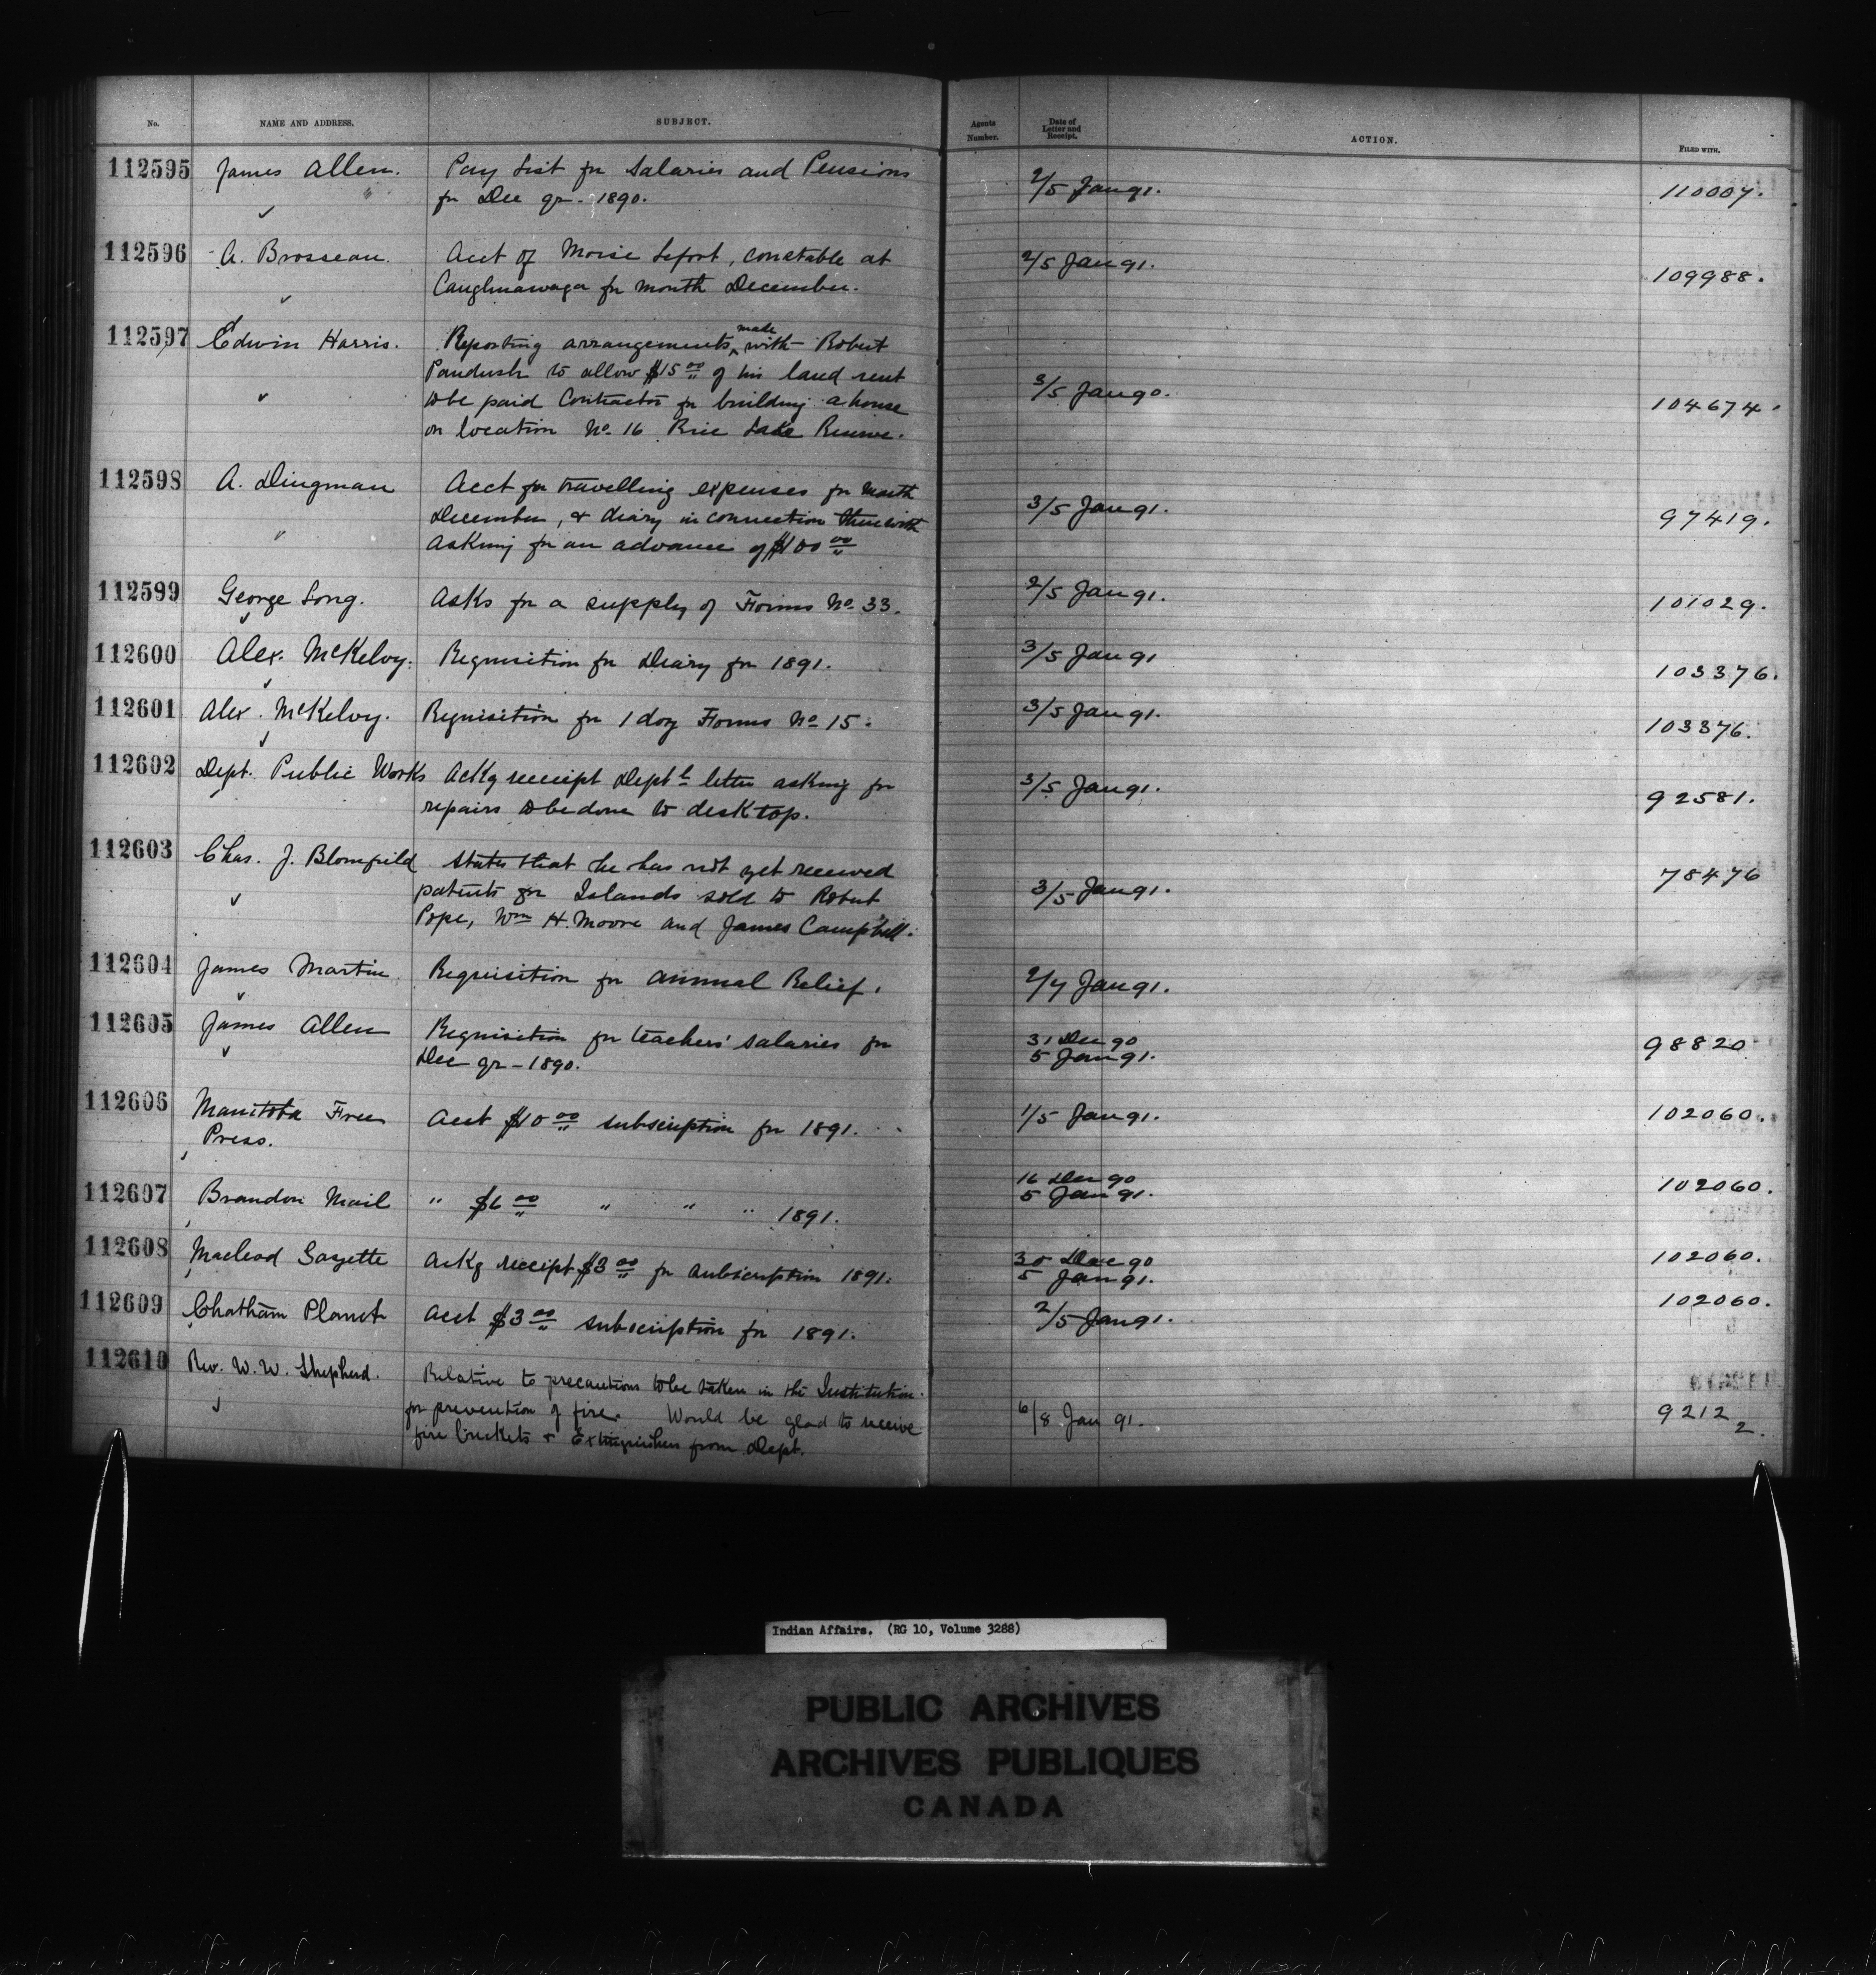 No. NAME AND ADDRESS. SUBJECT. Agents Number. Date of Letter and Receipt. ACTION. FILED WITH.
112595 James Allen. Pay List for Salaries and Pensions 2/5 Jan 91. 110007.
for Dec qr. 1890.
112596 A. Brosseau. Acct of Moise Lefort, constable at 2/5 Jan 91. 109988.
Caughnawaga for month December.
112597 Edwin Harris. Reporting arrangements made with Robert
Paudash to allow $15 00 of his land rent 3/5 Jan 90.
to be paid Contractor for building a house 104674.
on location No. 16 Rice Lake Reserve.
112598 A. Dingman Acct for travelling expenses for month
December, & diary in connection therewith 3/5 Jan 91. 97419.
Asking for an advance of $100 00
112599 George Long. Asks for a supply of Forms No. 33. 2/5 Jan 91. 101029.
112600 Alex. McKelvy. Requisition for Diary for 1891. 3/5 Jan 91 103376.
112601 Alex. McKelvy. Requisition for 1 doz Forms No 15. 3/5 Jan 91. 103376.
112602 Dept. Public Works Ackg receipt Deptl letter asking for 3/5 Jan 91. 92581.
repairs to be done to desk top.
112603 Chas. J. Blomfield States that he has not yet received 78476
patents for Islands sold to Robert 3/5 Jan 91.
Pope, Wm H. Moore and James Campbell.
112604 James Martin Requisition for annual Relief. 2/7 Jan 91.
112605 James Allen Requisition for teachers' salaries for 31 Dec 90 98820
Dec qr - 1890. 5 Jan 91.
112606 Manitoba Free Acct $10 00 subscription for 1891. 1/5 Jan 91. 102060.
Press.
112607 Brandon Mail " $6 00 " " " 1891. 16 Dec 90 102060.
5 Jan 91.
112608 Macleod Gazette Ackg receipt $3 00 for subscription 1891. 30 Dec 90 102060.
5 Jan 91.
112609 Chatham Planet Acct $3 00 subscription for 1891. 2/5 Jan 91. 102060.
112610 Rev. W. W. Shepherd. Relative to precautions to be taken in the Institution
for prevention of fire. Would be glad to receive 6/8 Jan 91. 92122.
fire buckets & Extinguishers from Dept.
Indian Affairs. (RG 10, Volume 3288)
PUBLIC ARCHIVES
ARCHIVES PUBLIQUES
CANADA